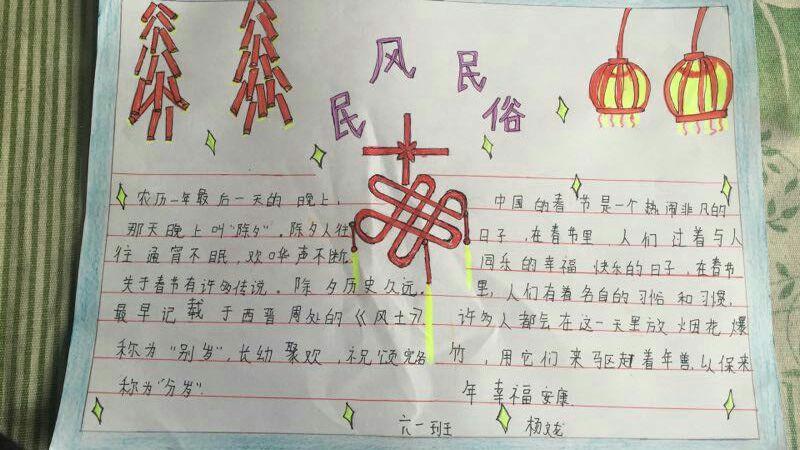 民风民俗
农历一年最后一天的晚上,
那天晚上叫"除夕",除夕人往
往通宵不眠,欢哗声不断.
关于春节有许多传说。除夕历史久远,
最早记载于西晋周处的《风土
称为"别岁",长幼聚欢,祝颂完备
称为"分岁".
中国的春节是一个热闹非凡的
日子,在春节里 人们过着与人
同乐的幸福快乐的日子,在春节
里,人们有着各自的习俗和习惯,
许多人都会在这一天里放烟花爆
竹,用它们来驱赶着年兽,以保来
年幸福安康.
六一班 杨文龙